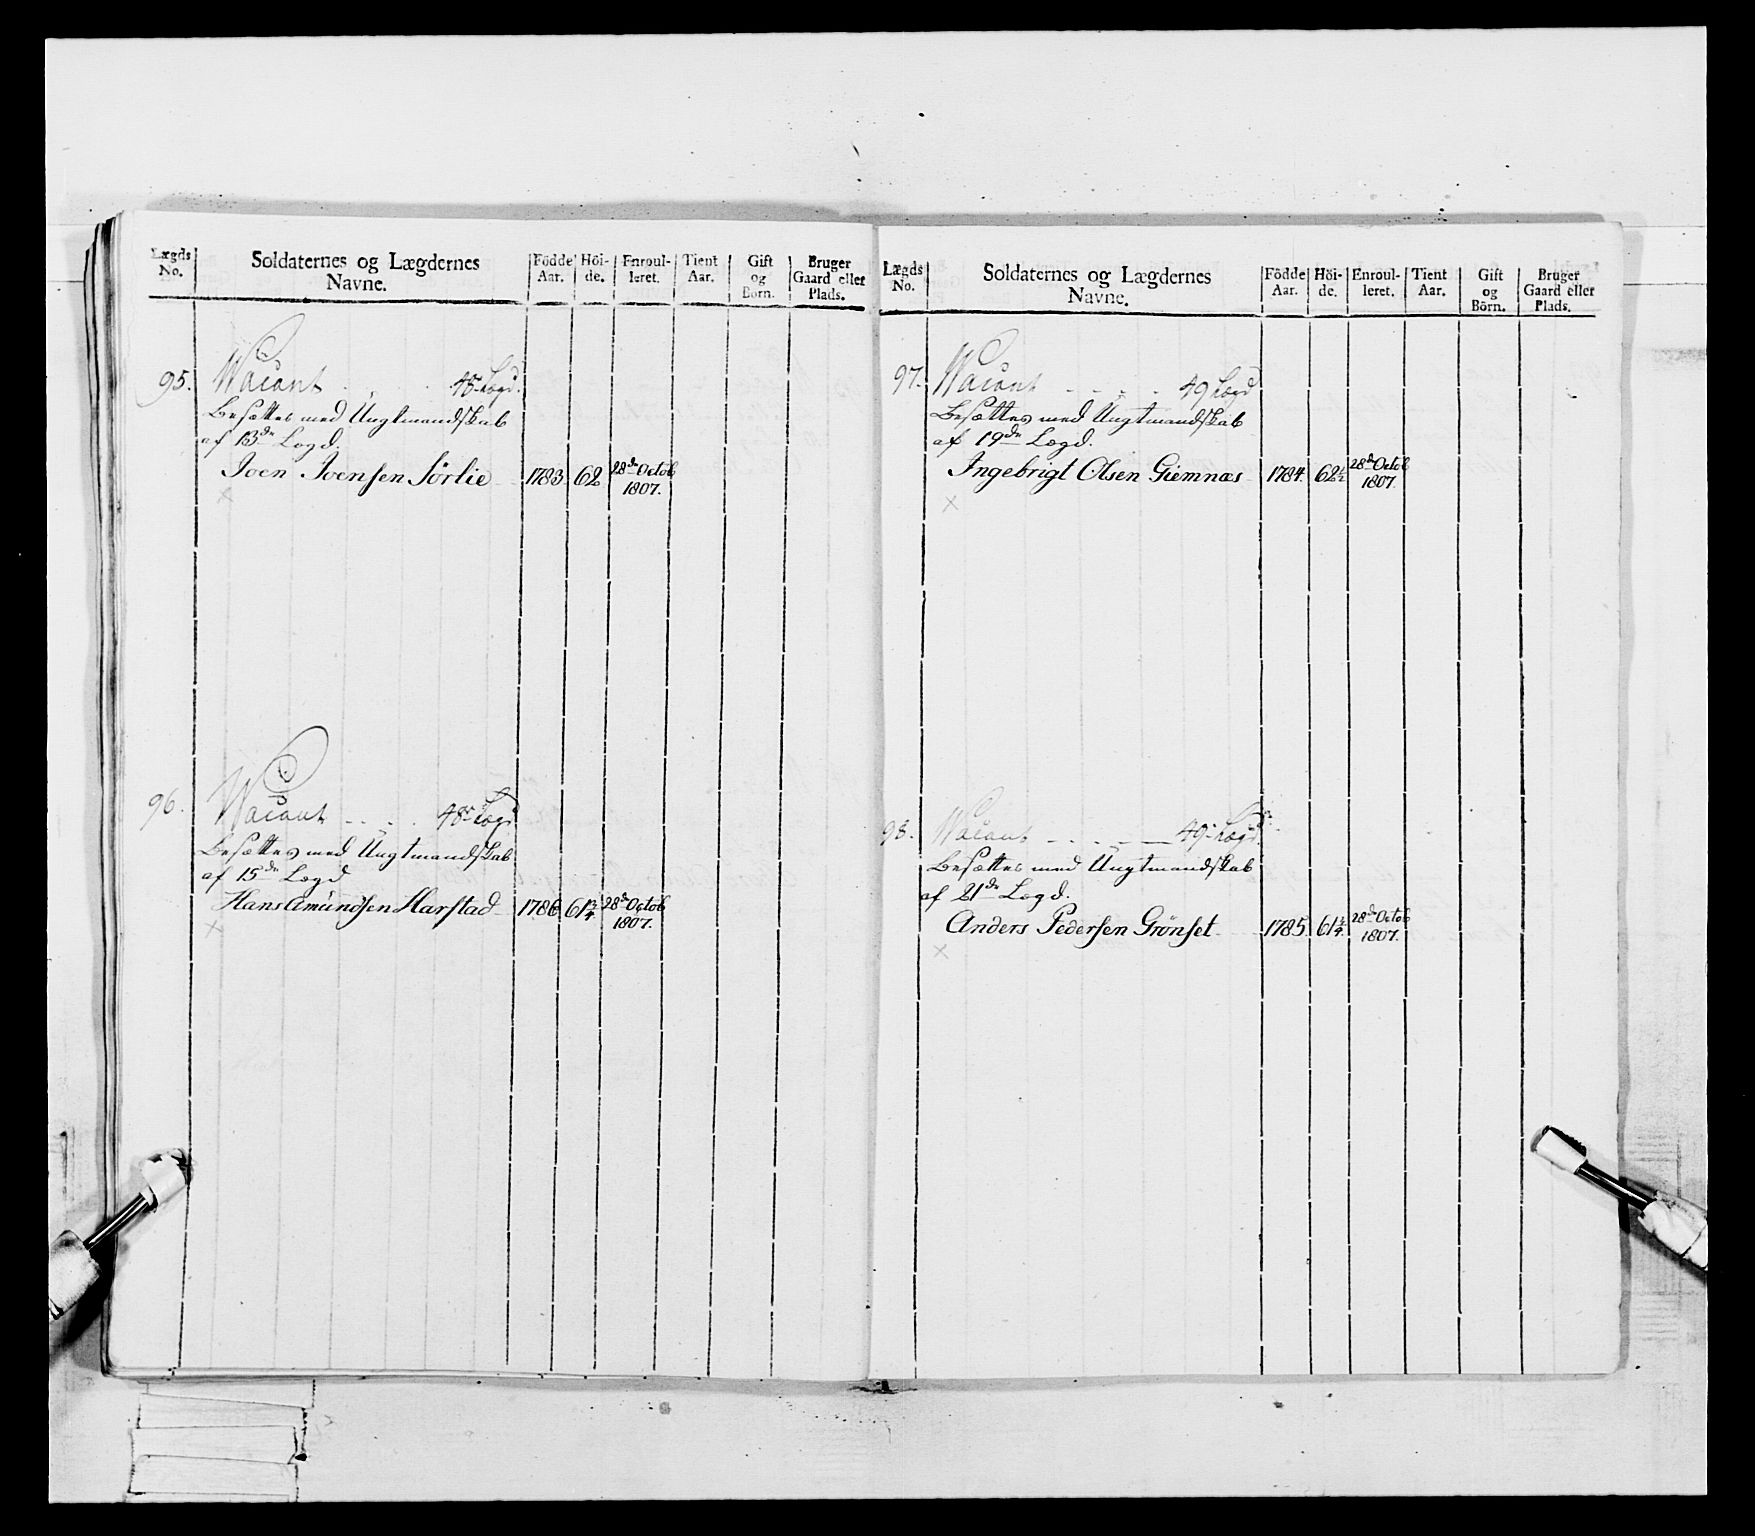 Lægds No.
Soldaternes og Lægdernes Navne.
Födde Aar.
Höi-de.
Enroul-leret.
Tient Aar.
Gift og Börn.
Bruger Gaard eller Plads.
95. Wacant 48 Lægd.
Besættes med Ungtmandskab
af 13de Lægd.
Joen Joensen Sörlie 1783 62 28de Octob 1807.
96. Wacant 48 Lægd
Besættes med Ungtmandskab
af 15de Lægd
Hans Amundsen Harstad 1786 61¾ 28de Octob 1807.
Lægds No.
Soldaternes og Lægdernes Navne.
Födde Aar.
Höi-de.
Enroul-leret.
Tient Aar.
Gift og Börn.
Bruger Gaard eller Plads.
97. Wacant 49 Lægd
Besættes med Ungtmandskab
af 19de Lægd.
Ingebrigt Olsen Giemnæs 1784. 62½ 28de Octob 1807.
98. Wacant 49 Lægd.
Besættes med Ungtmandskab
af 21de Lægd.
Anders Pedersen Grönset 1785 61¾ 28de Octob 1807.